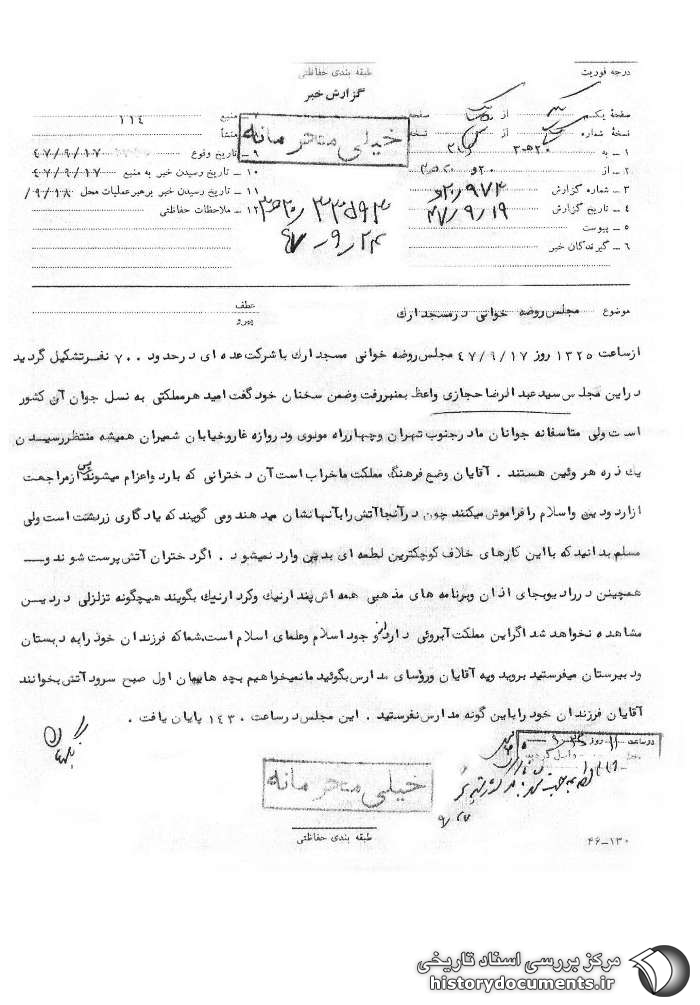 درجه فوریت
طبقه بندی حفاظتی
گزارش خبر
صفحهٔ یک از صفحه
نسخهٔ شماره از نسخه
۱ ــ به
۲ ــ از
۳ ــ شماره گزارش ۹۷۴
۴ ــ تاریخ گزارش ۴۷/۹/۱۹
۵ ــ پیوست
۶ ــ گیرندگان خبر
خیلی محرمانه
منبع ۱۱۴
منشأ
۹ ــ تاریخ وقوع ۴۷/۹/۱۷
۱۰ ــ تاریخ رسیدن خبر به منبع ۴۷/۹/۱۷
۱۱ ــ تاریخ رسیدن خبر برهبر عملیات محل ۹/۱۸/
۱۲ ــ ملاحظات حفاظتی
۴۷/۹/۲۴
موضوع مجلس روضه خوانی در مسجد ارك
عطف
پیرو
از ساعت ۱۳۲۵ روز ۴۷/۹/۱۷ مجلس روضه خوانی مسجد ارك با شرکت عده ای در حدود ۷۰۰ نفر تشکیل گردید
در این مجلس سید عبد الرضا حجازی واعظ بمنبر رفت وضمن سخنان خود گفت امید هر مملکتی به نسل جوان آن کشور
است ولی متاسفانه جوانان ما در جنوب تهران وچهارراه مولوی ودروازه غار وخیابان شمیران همیشه منتظر رسیدن
یك ذره هروئین هستند . آقایان وضع فرهنگ مملکت ما خراب است آن دخترانی که بارد واعزام میشوند پس از مراجعت
از اردو دین واسلام را فراموش میکنند چون در آنجا آتش را بآنها نشان میدهند ومی گویند که یادگاری زردشت است ولی
مسلم بدانید که با این کارهای خلاف کوچکترین لطمه ای بدین وارد نمیشود . اگر دختران آتش پرست شوند و
همچنین در رادیو بجای اذان وبرنامه های مذهبی همه اش پندار نیك وکردار نیك بگویند هیچگونه تزلزلی در دین
مشاهده نخواهد شد اگر این مملکت آبروئی دارد از وجود اسلام وعلمای اسلام است.شما که فرزندان خود را به دبستان
ودبیرستان میفرستید بروید وبه آقایان ورؤسای مدارس بگوئید ما نمیخواهیم بچه هایمان اول صبح سرود آتش بخوانند
آقایان فرزندان خود را باین گونه مدارس نفرستید . این مجلس در ساعت ۱۴۳۰ پایان یافت .
در ساعت ۱۱ روز
خیلی محرمانه
طبقه بندی حفاظتی
۴۶ــ۱۳۰
مرکز بررسی اسناد تاریخی
historydocuments.ir